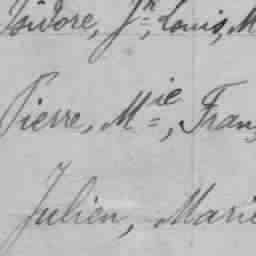 Isidore, Jn, Louis, M
Pierre, Mie, Franç
Julien, Marie